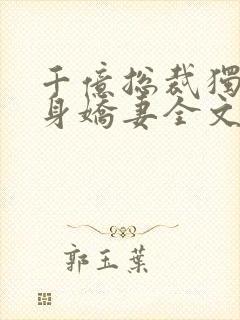 千億總裁獨
身嬌妻全文
郭玉葉